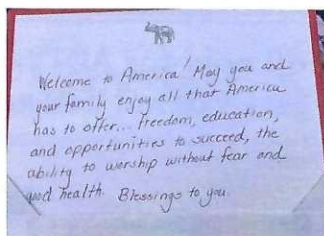 Welcome to America! May you and
your family enjoy all that America
has to offer... freedom, education,
and opportunities to succeed, the
ability to worship without fear and
good health. Blessings to you.